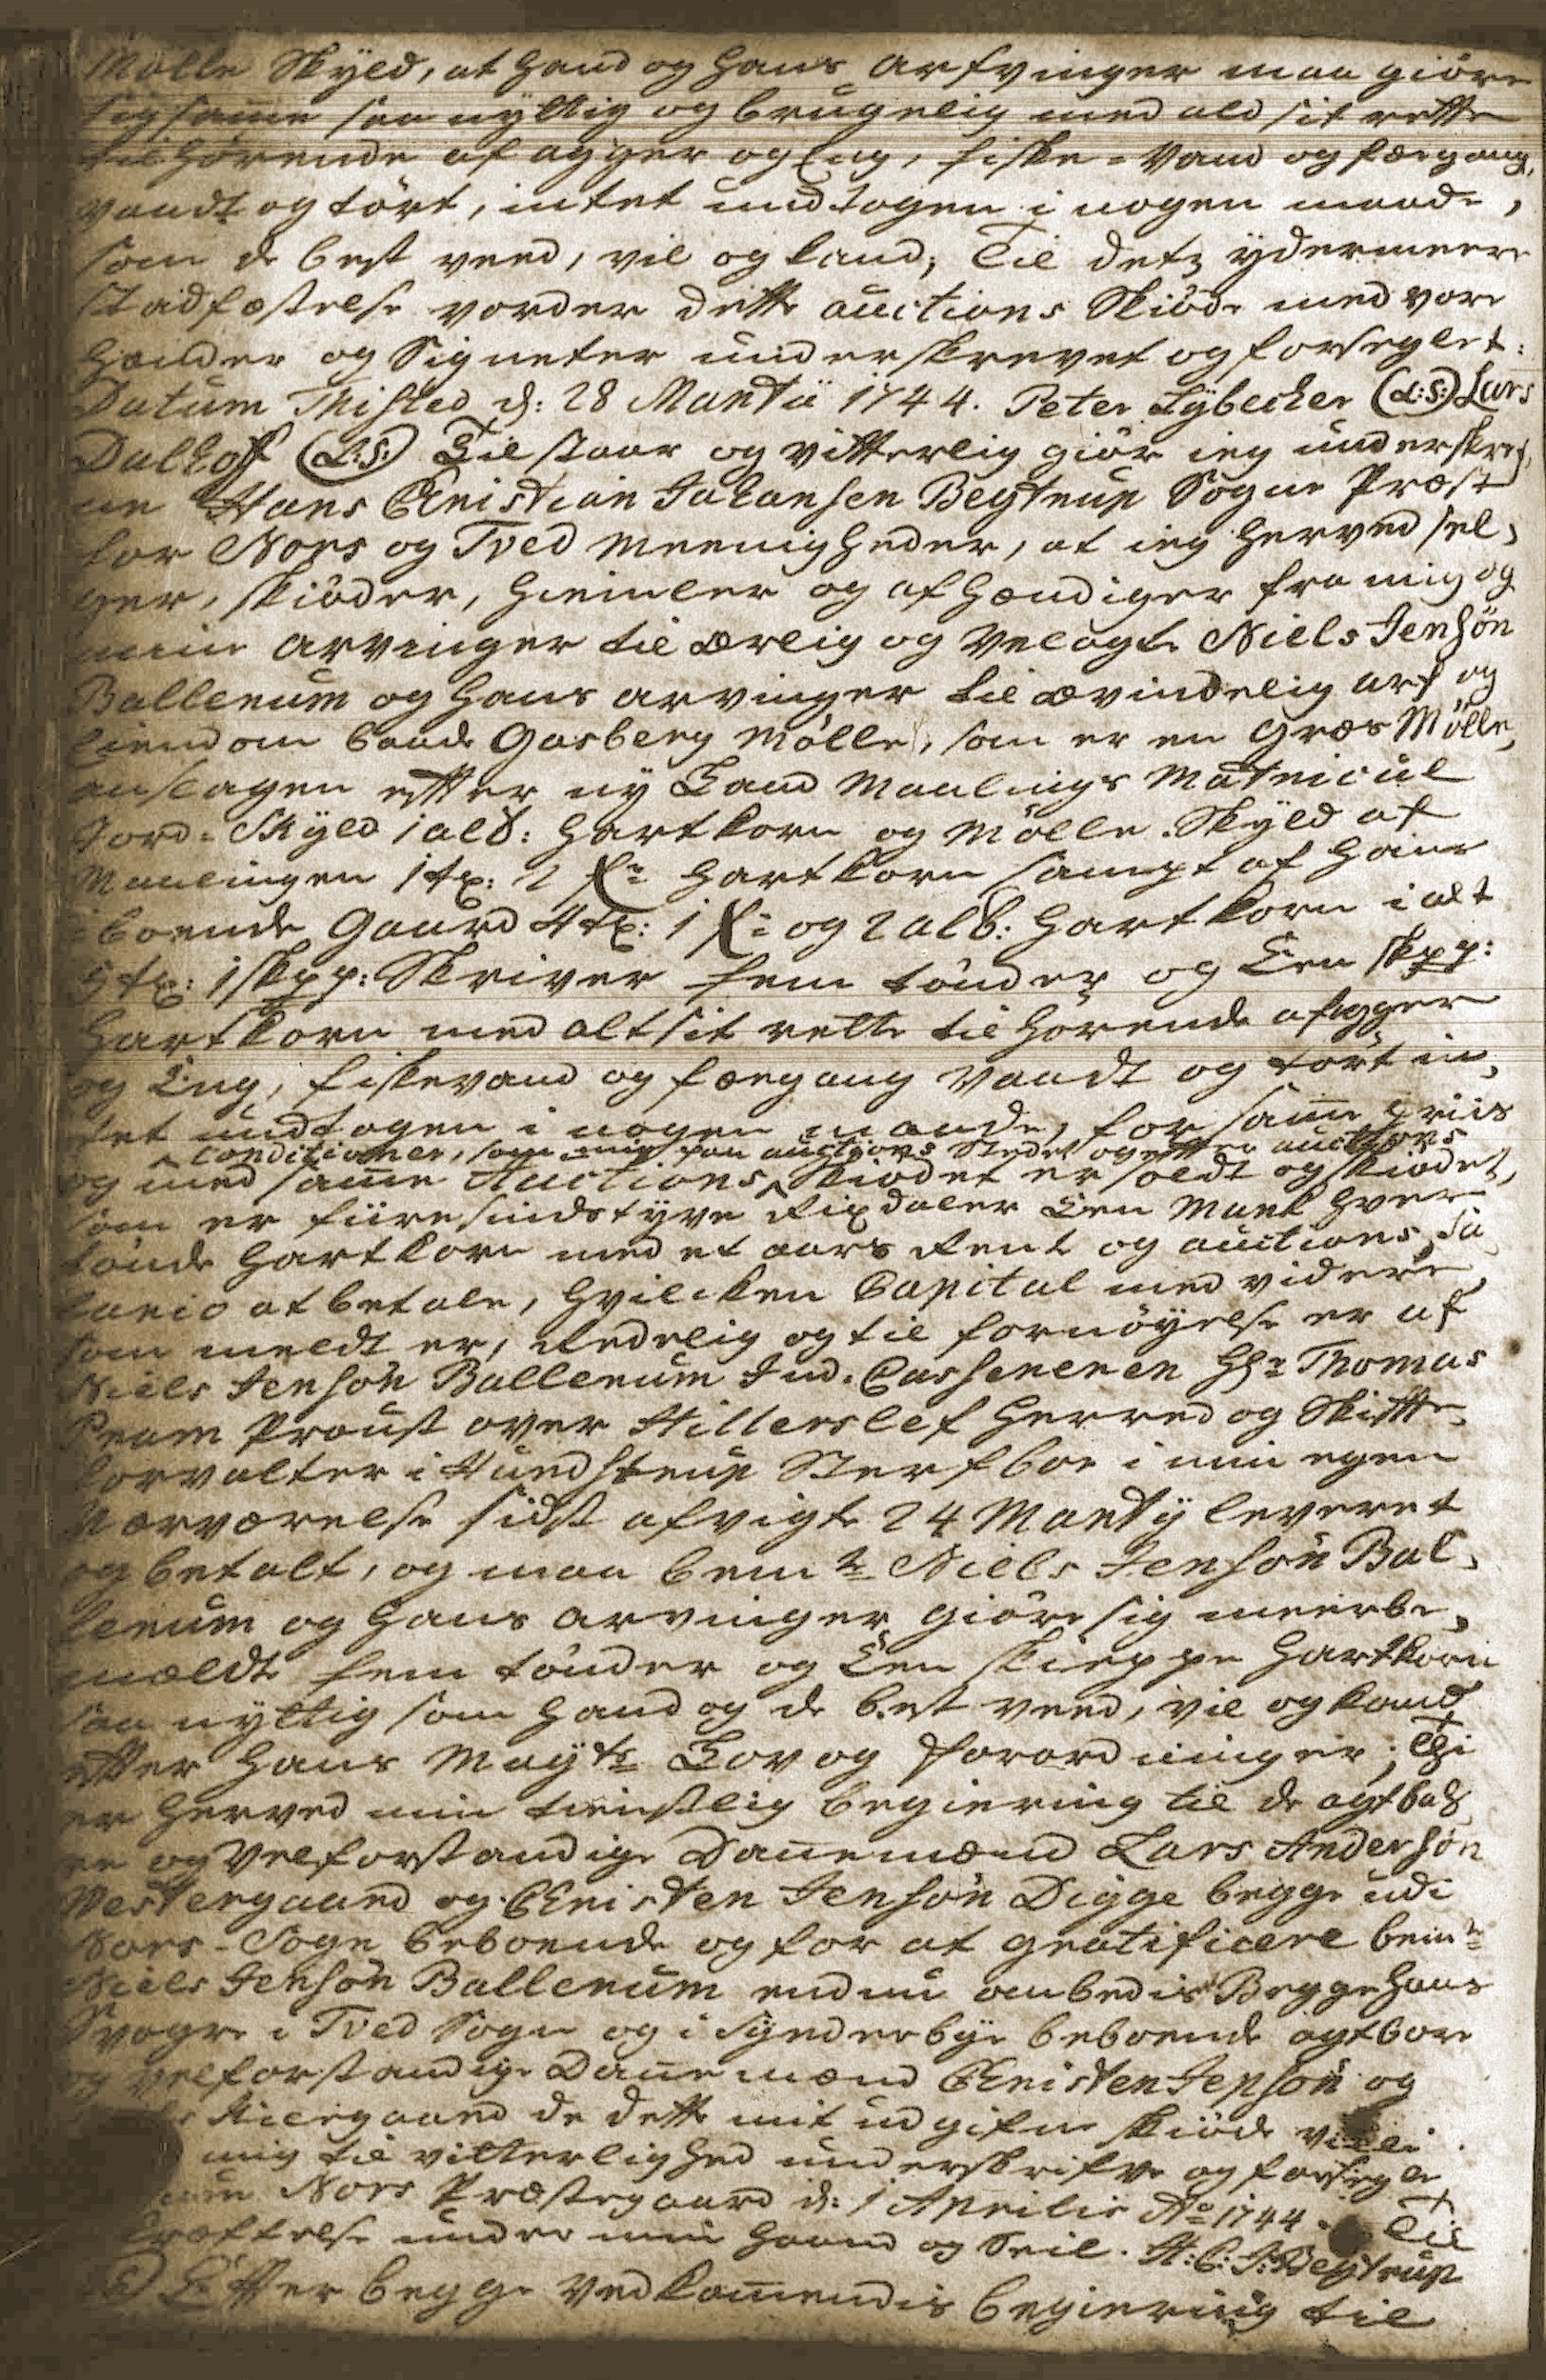 Mølle Skyld, at hand og hans Arfvinger maa giøre
sig same saa nyttig og brugelig med ald sit rette
tilhørende af agger og Eng, fiske-Vand og fægang,
vaadt og tørt, intet undtagen i nogen maade,
som de best veed, vil og kand; Til detz ydermeere
Stadfæstelse vorder dette auctions Skiøde med vore
Hænder og Signeter underskrevet og forseglet:
Datum Thisted d: 28 Martii 1744. Peter Lybecker (L:S:) Lars
Dalhoff (L:S:) Tilstaar og vitterlig giør ieg underskref,
ne Hans Christian Johansen Begtrup Sogne Præst
for Nors og Tved Meenigheder, at ieg herved sel,
ger, skiøder, hiemler og afhændiger fra mig og
mine Arvinger til Ærlig og Velagte Niels Jensøn
Ballerum og hans arvinger til ævindelig arf og
Eiendom baade Gasberg Mølle, som er en Græs Mølle,
anslagen efter ny Land Maalings Matricul
Jord-Skyld 1 alb: Hartkorn og Mølle-Skyld af
Maalingen 1 tr: 2 fr: Hartkorn sampt af hans
iboende Gaard 4 tr: 1 fr: og 2 alb: Hartkorn i alt
5 tr: 1 skpp: Skriver fem tønder og Een skpp:
Hartkorn med alt sit rette tilhørende af agger
og Eng, fiskevand og fægang vaadt og tørt in,
tet undtagen i nogen maade, for same priis
Conditioner, som mig paa auctions Stedet og efter auctions
og med same Auctions Skiødet er soldt og skiødet,
som er fiiresindstyve Rixdaler Een Mark hver
tønde Hartkorn med et aars Rente og auctions Sa,
lario at betale, hvilcken Capital med videre
som meldt er, Redelig og til fornøyelse er af
Niels Jensøn Ballerum Ind-Casseneren Hr: Thomas
Bram Proust over Hillerslef Herred og Skifte-
forvalter i Hundstrup Sterfboe i min egen
Nærværelse sidst afvigte 24 Marty leveret
og betalt, og maa bemte Niels Jensøn Bal,
lerum og hans arvinger giøre sig meerbe,
meldte fem tønder og Een skieppe Hartkorn
saa nyttig som hand og de best veed, vil og kand
efter Hans Mayts Lov og Forordninger; Thi
er herved min tienstlig begiering til de agtba,
re og Velforstandige Danemænd Lars Andersøn
Westergaard og Christen Jensøn Digge begge udi
Nors-Sogn beboende og for at gratificere bemte
Niels Jensøn Ballerum endnu ombedis Begge hans
Svogre i Tved Sogn og i Synderbye beboende agtbare
og velforstandige Danemænd Christen Jepsøn og
Kiergaard de dette mit udgifne skiøde ville
mig til vitterlighed underskrifve og forsegle
Nors Præstegaard d: 1 Aprilis Ao 1744. Til
kræftelse under min Haand og Seil. H:C:J:Begtrup
Efter begge Vedkomendis begiering til